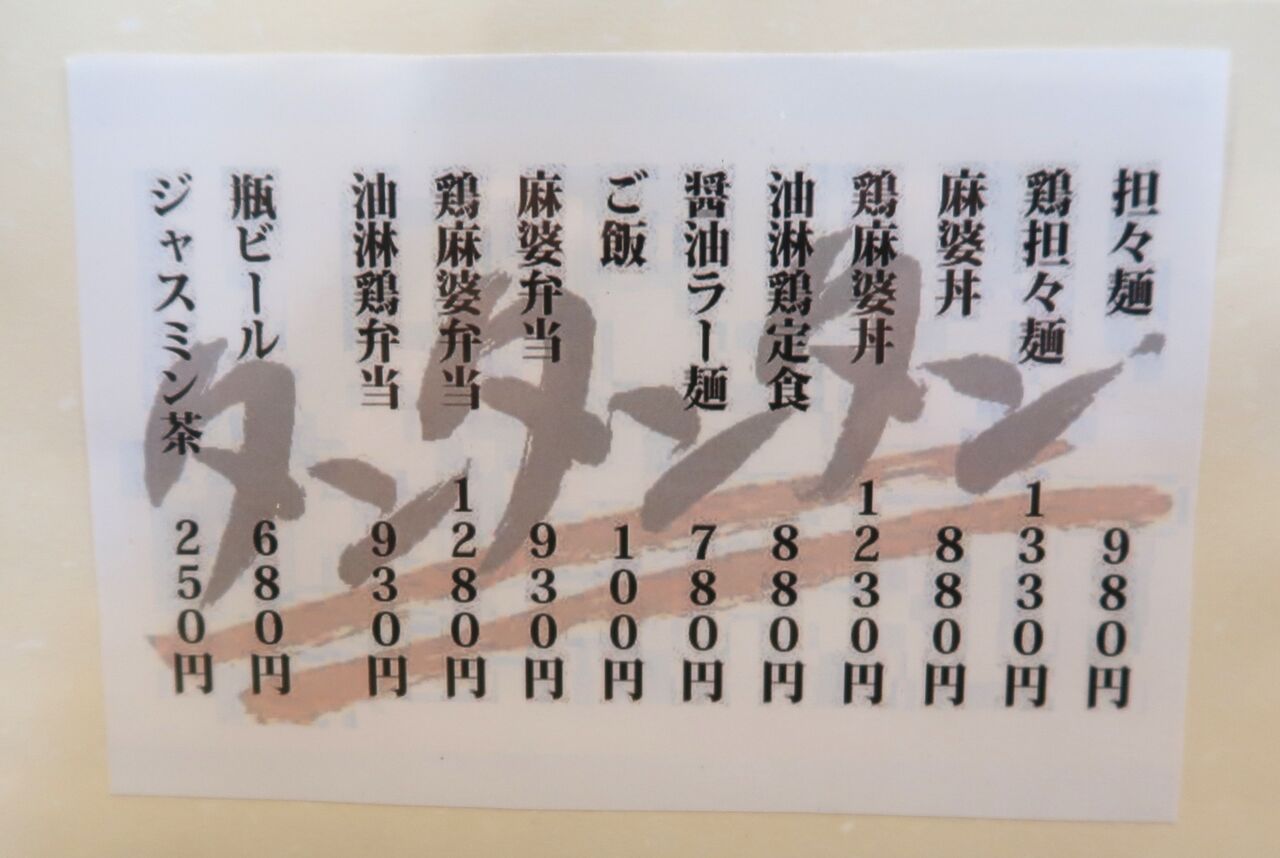 担々麺 980円
鶏担々麺 1330円
麻婆丼 880円
鶏麻婆丼 1230円
油淋鶏定食 880円
醤油ラー麺 780円
ご飯 100円
麻婆弁当 930円
鶏麻婆弁当 1280円
油淋鶏弁当 930円
瓶ビール 680円
ジャスミン茶 250円
タンタンタン